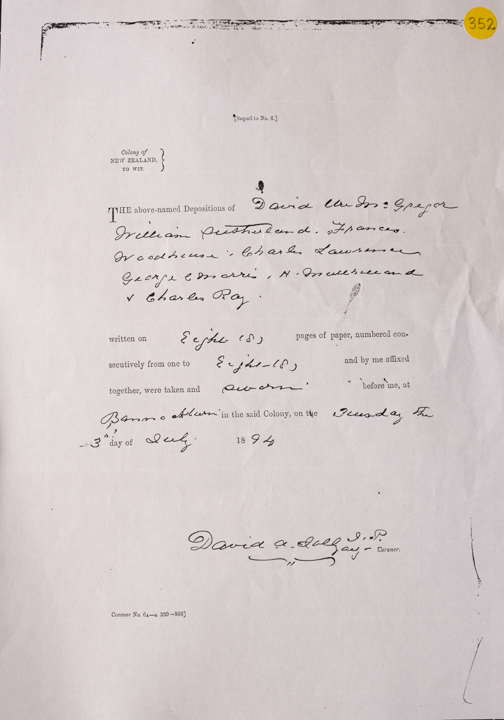 352
[Sequel to No. 6.]
Colony of
NEW ZEALAND,
TO WIT.
THE above-named Depositions of David Wm McGregor
William Sutherland. Frances.
Woodhouse. Charles Lawrence
George C Morris, H. 
& Charles Ray.
written on Eight (8) pages of paper, numbered con-
secutively from one to Eight (8) and by me affixed
together, were taken and sworn before me, at
Bannockburn in the said Colony, on the Tuesday the
3rd day of July 1894
David A. Jolly J.P.
Coroner.
Coroner No. 6A